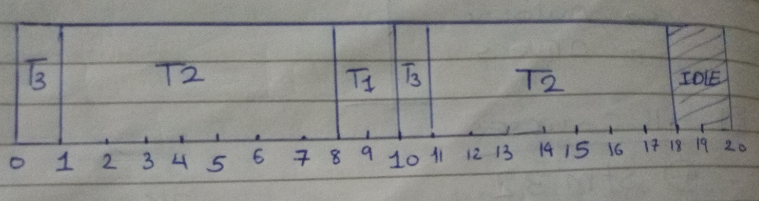 T3 T2 T1 T3 T2 IDLE
0 1 2 3 4 5 6 7 8 9 10 11 12 13 14 15 16 17 18 19 20